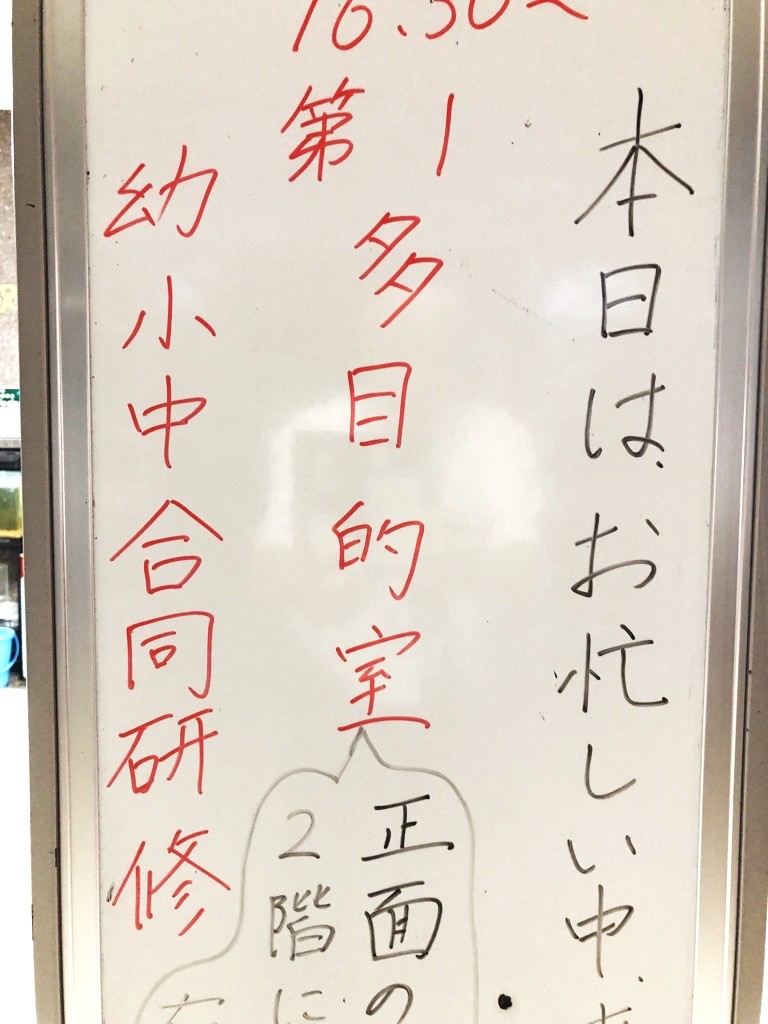 本日は、お忙しい中、
16.30～
第1
多目的室
正面の
2階に
幼小中合同研修